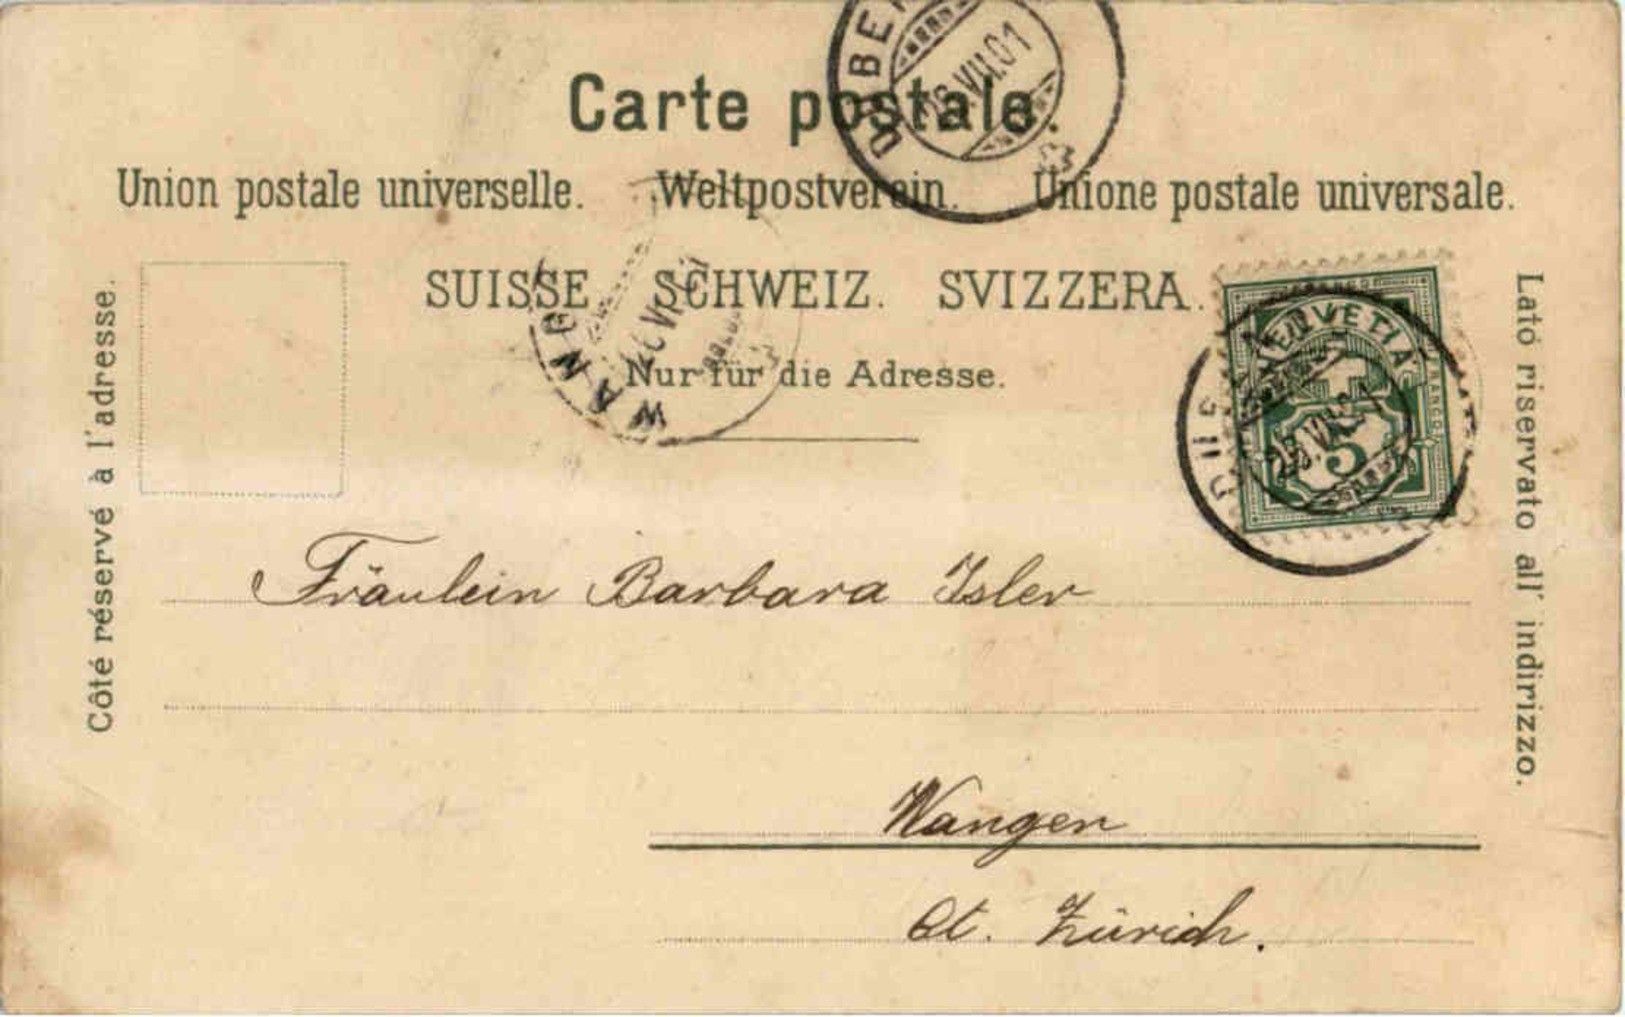 Carte postale.
Union postale universelle. Weltpostverein. Unione postale universale.
SUISSE. SCHWEIZ. SVIZZERA.
Nur für die Adresse.
Côté réservé à l'adresse.
Lato riservato all' indirizzo.
26.VII.01
WANG
HELVETIA
FRANCO
5
Fräulein Barbara Isler
Wangen
Ct. Zürich.